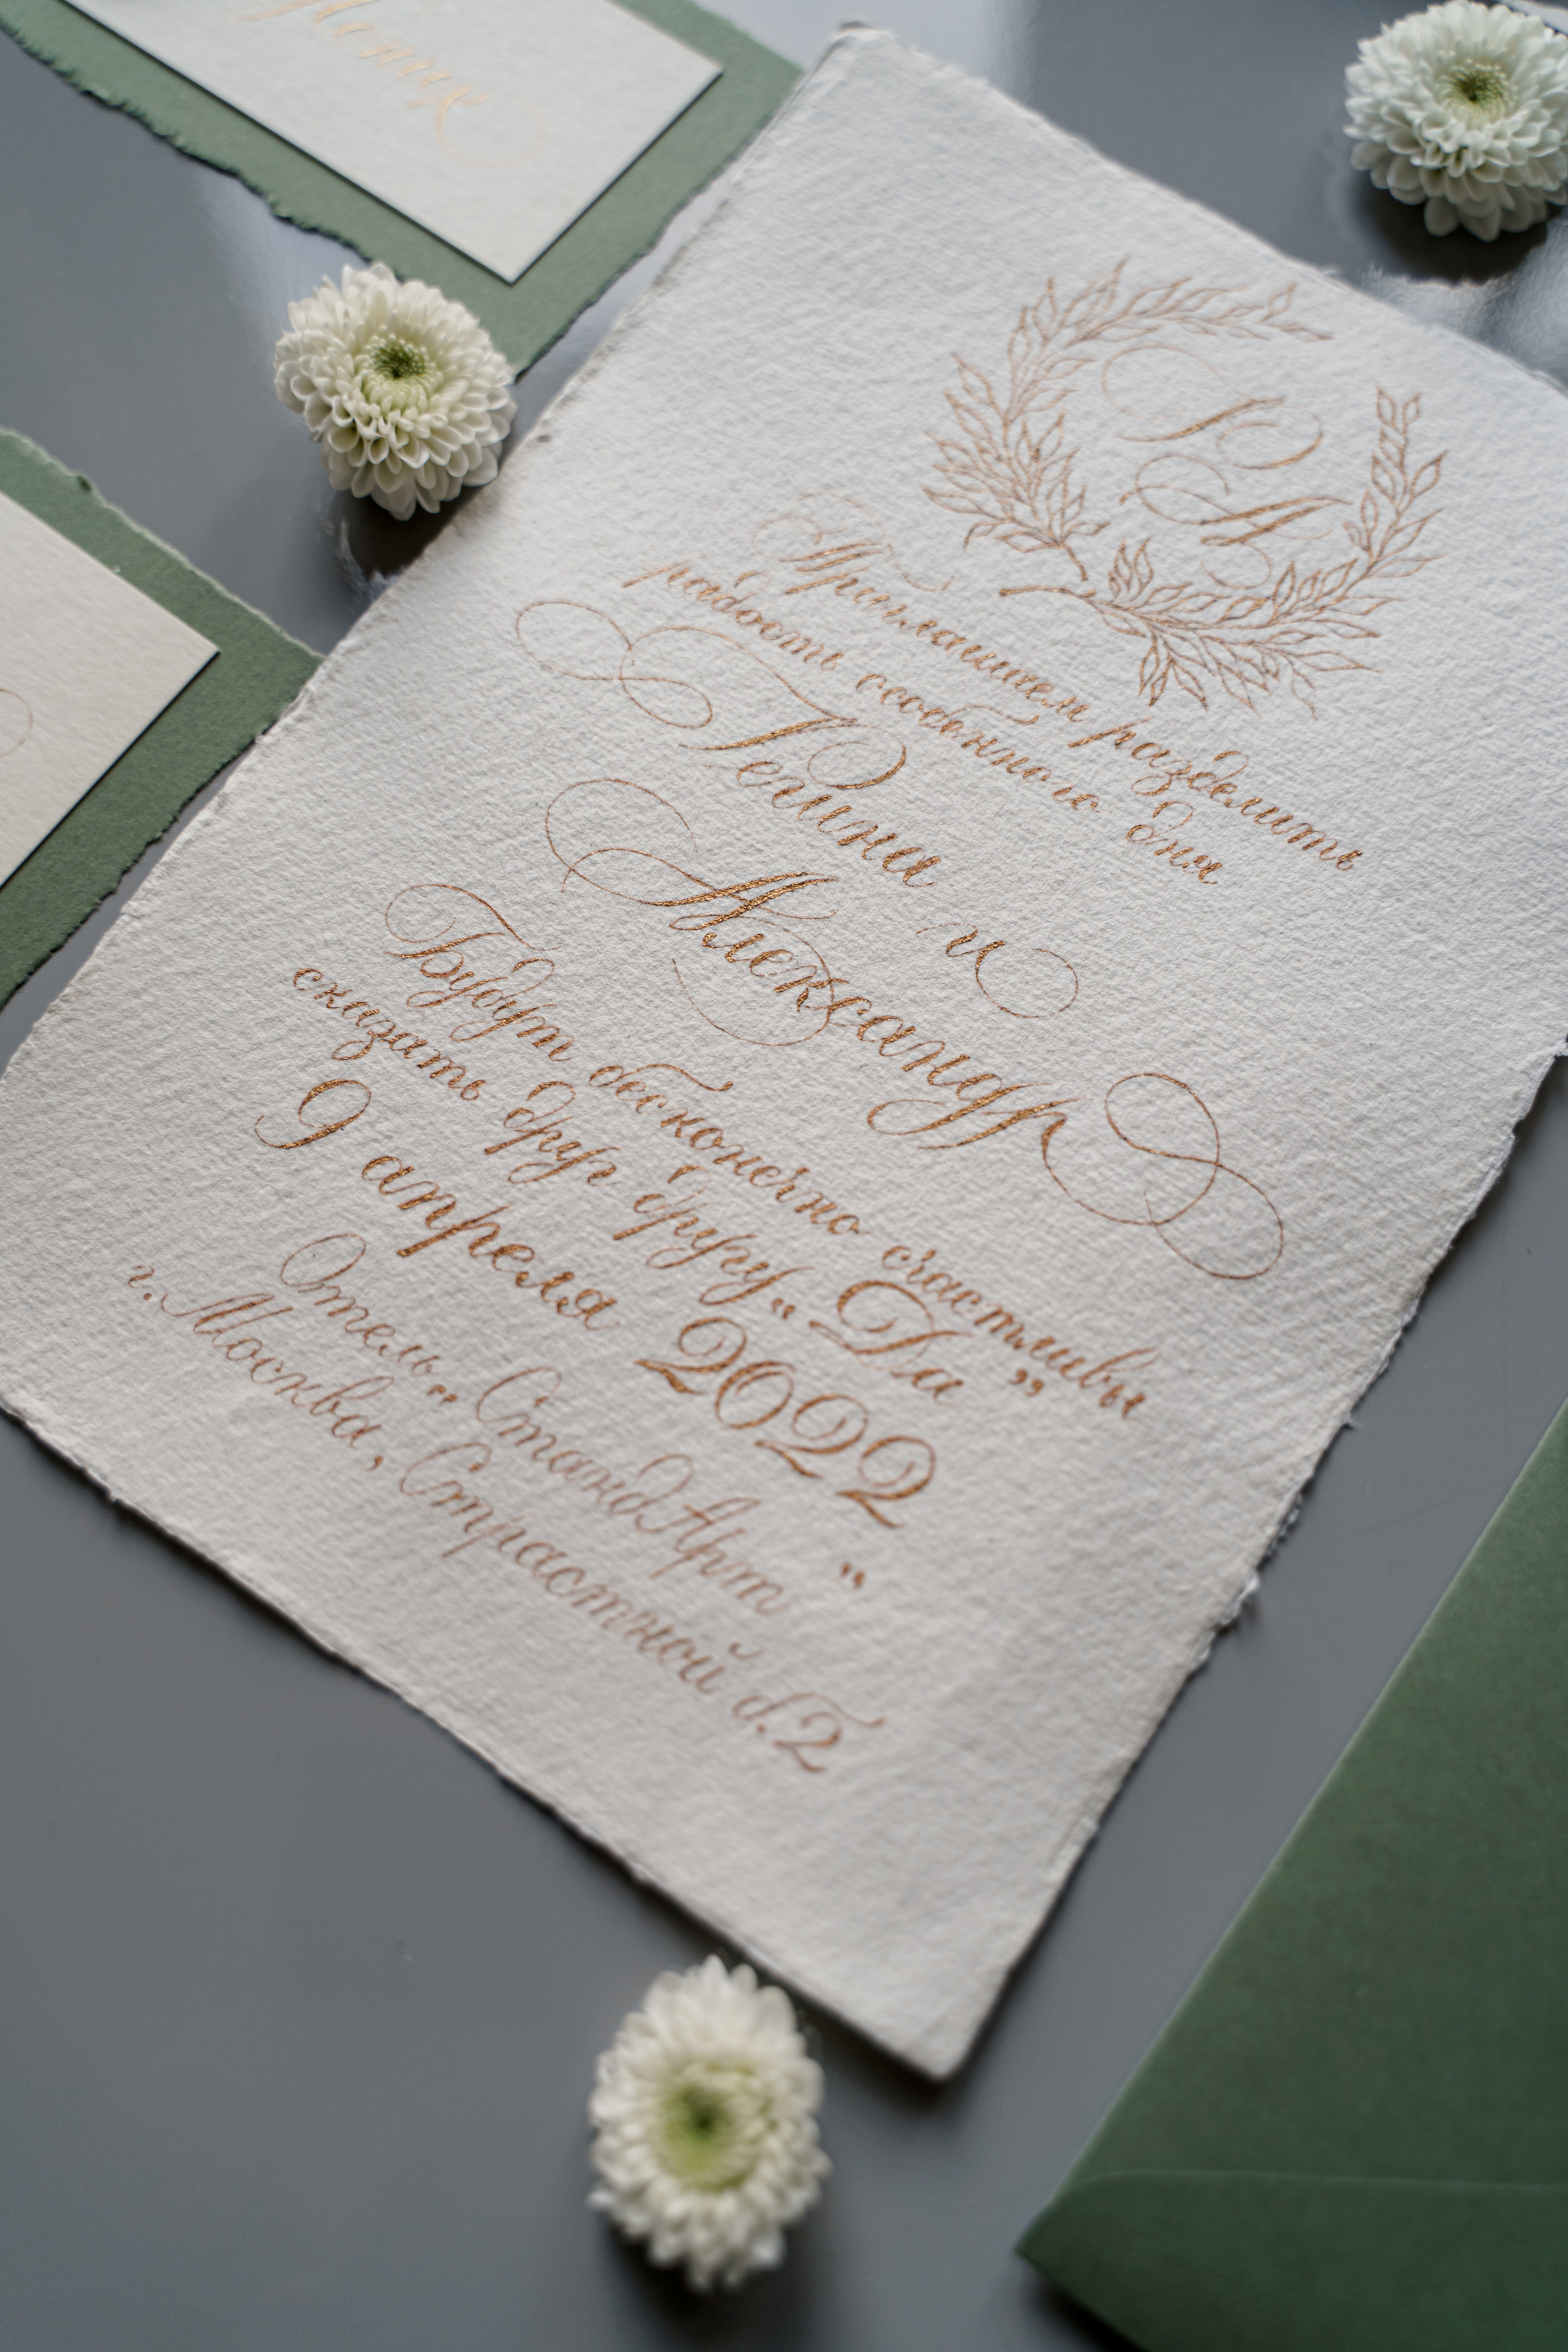 Жених
Р
А
Приглашаем разделить
радость особенного дня
Регина и
Александр
Будут бесконечно счастливы
сказать друг другу „Да”
9 апреля 2022
Отель „СтандАрт”
г. Москва, Страстной б.2